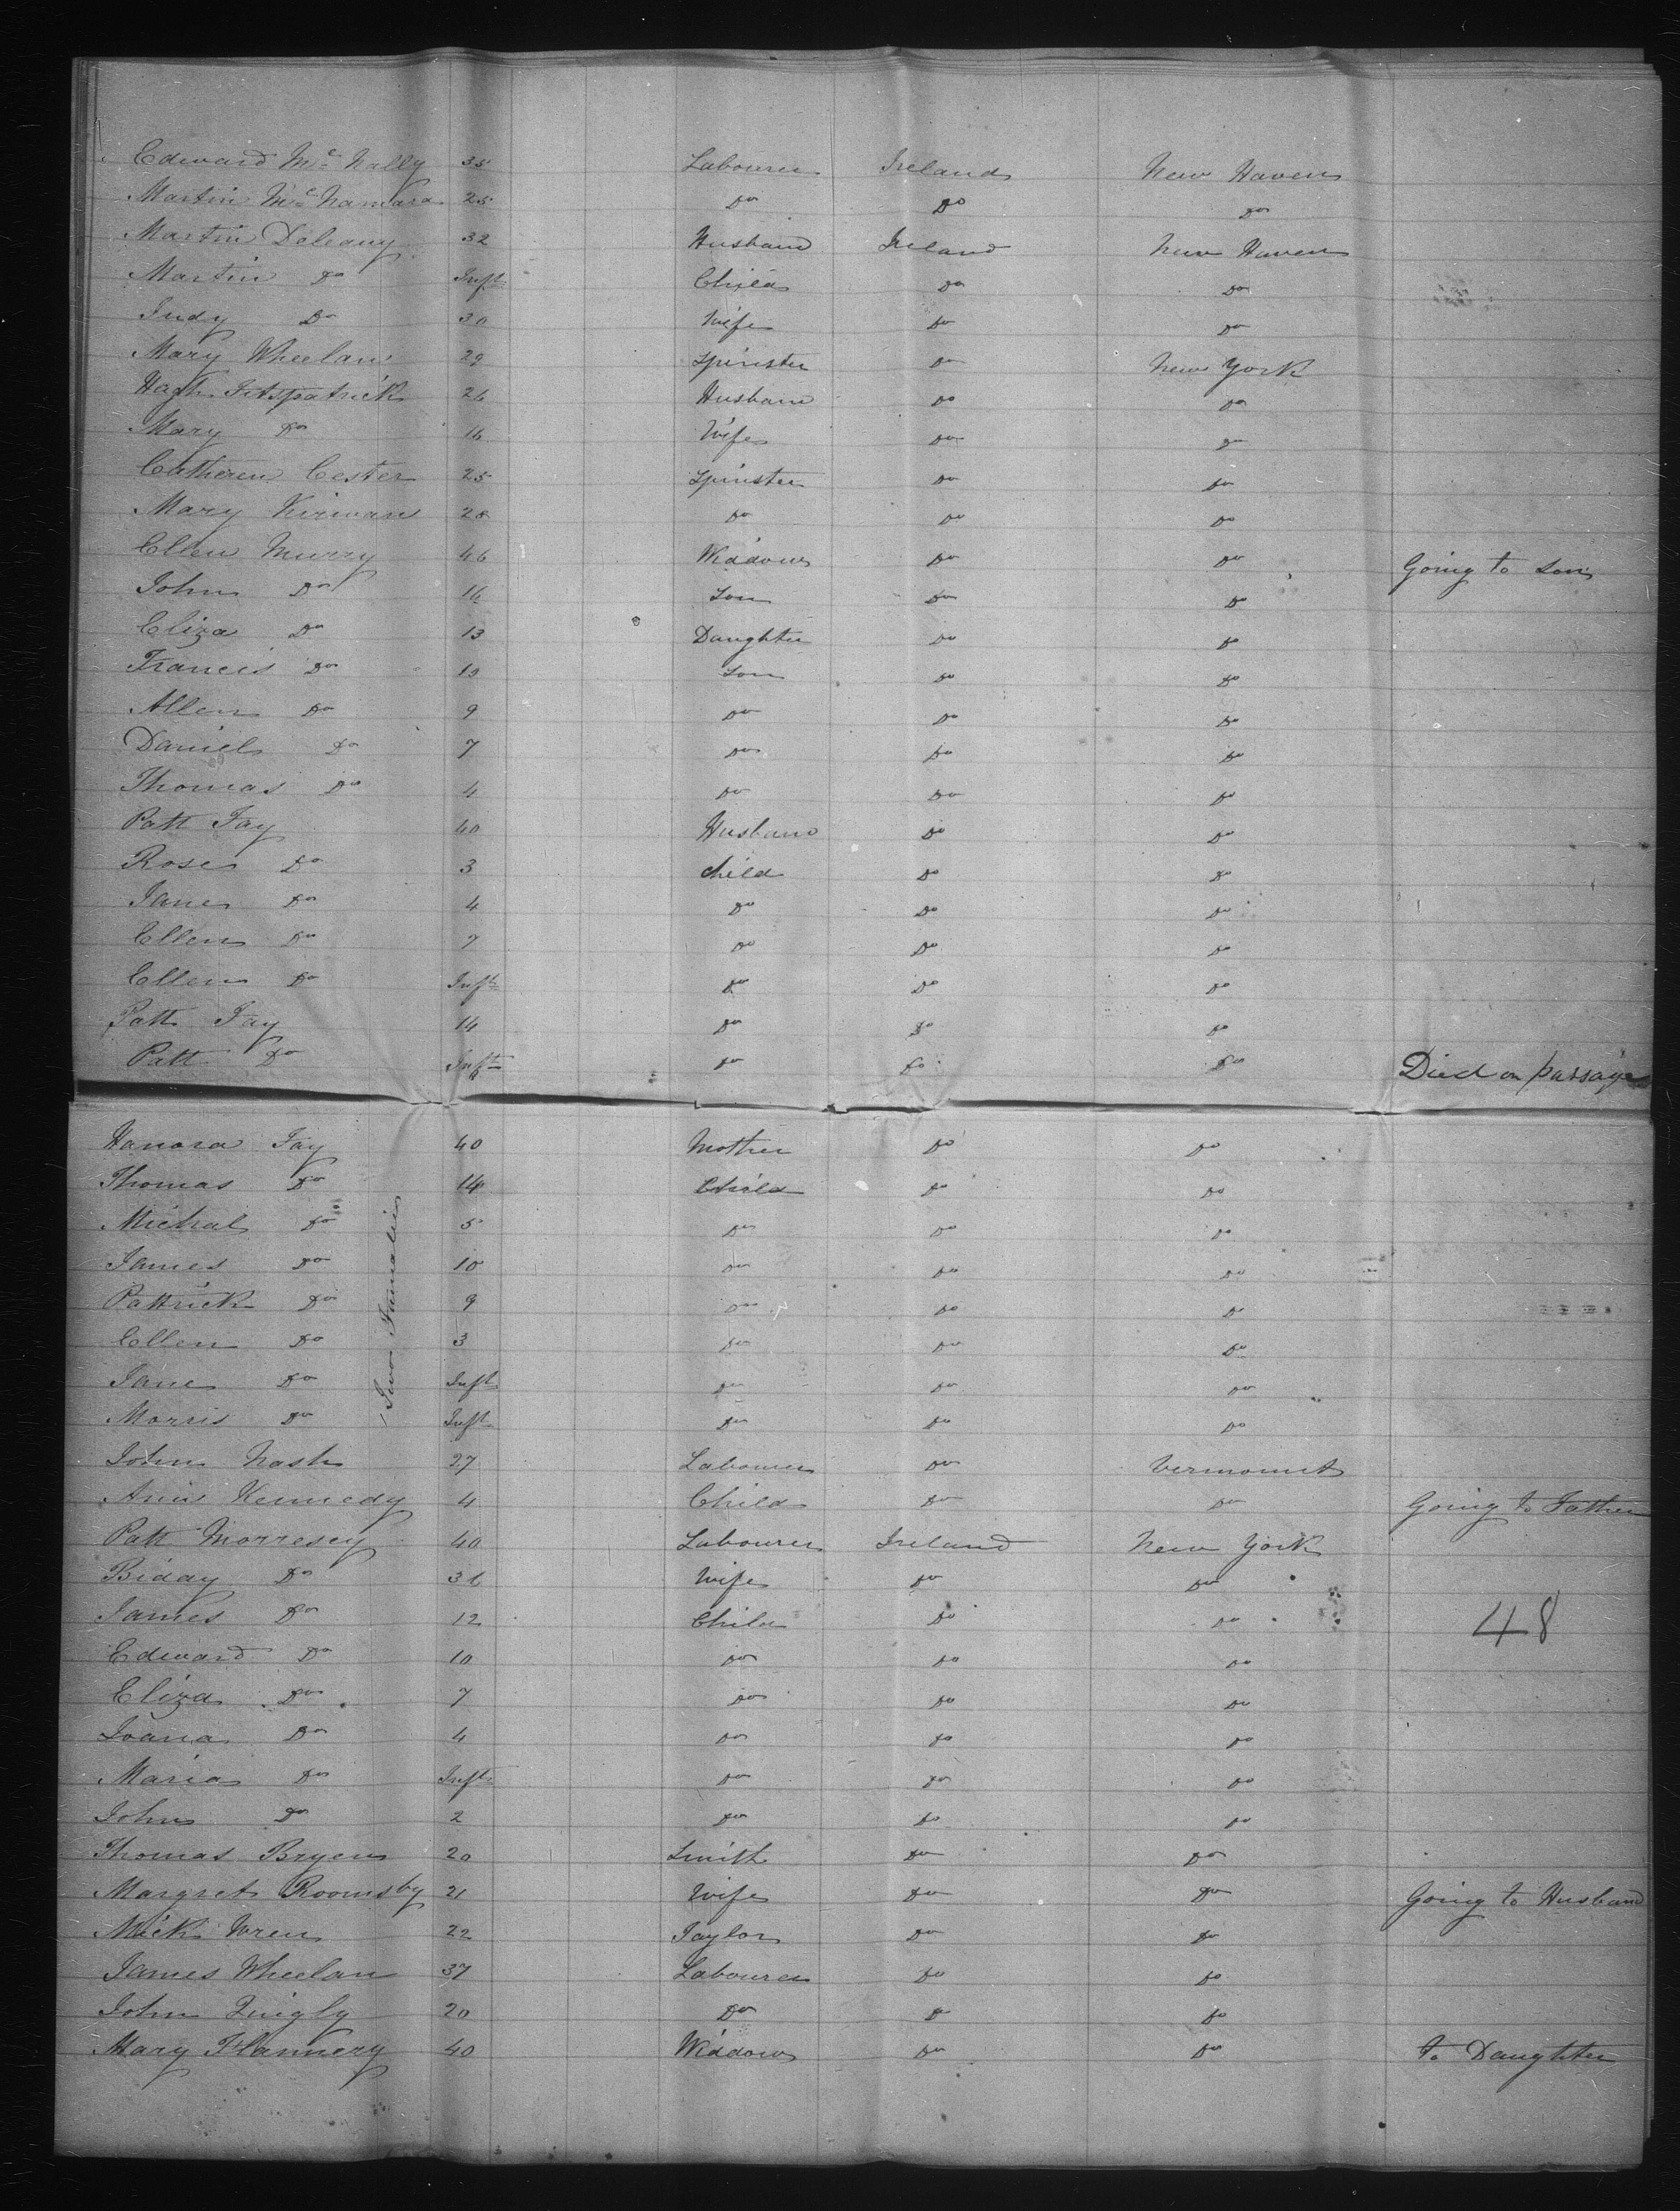 Edward Mc Nally 35 Labourer Ireland New Haven
Martin Mc Namara 25 Do Do Do
Martin Deleany 32 Husband Ireland New Haven
Martin Do Inft Child Do Do
Judy Do 30 Wife Do Do
Mary Wheelan 29 Spinster Do New York
Hugh Fitspatrick 26 Husband Do Do
Mary Do 16 Wife Do Do
Catheren Cester 25 Spinster Do Do
Mary Kirwan 28 Do Do Do
Ellen Murry 46 Widdow Do Do Going to Son
John Do 16 Son Do Do
Eliza Do 13 Daughter Do Do
Francis Do Son Do Do
Allen Do 9 Do Do Do
Daniel Do 7 Do Do Do
Thomas Do 4 Do Do Do
Patt Fay 40 Husband Do Do
Rose Do 3 child Do Do
Jane Do 4 Do Do Do
Ellen Do 7 Do Do Do
Ellen Do Inft Do Do Do
Patt Fay 14 Do Do Do
Patt Do Inft Do Do Do Died on passage
Hanora Fay 40 Mother Do Do
Thomas Do 14 Child Do Do
Michal Do 5 Do Do Do
James Do 10 Do Do Do
Pattrick Do 9 Do Do Do
Ellen Do 3 Do Do Do
Jane Do Inft Do Do Do
Morris Do Inft Do Do Do
Two Famalies
John Nash 27 Labourer Do Vermount
Anne Kennedy 4 Child Do Do Going to Father
Patt Morresey 40 Labourer Ireland New York
Biday Do 36 Wife Do Do
James Do 12 Child Do Do 48
Edward Do 10 Do Do Do
Eliza Do 7 Do Do Do
Joana Do 4 Do Do Do
Maria Do Inft Do Do Do
John Do 2 Do Do Do
Thomas Bryen 20 Smith Do Do
Margret Roomsby 21 Wife Do Do Going to Husband
Mick Wren 22 Taylor Do Do
James Wheelan 37 Labourer Do Do
John Quigly 20 Do Do Do
Mary Flannery 40 Widdow Do Do to Daughter